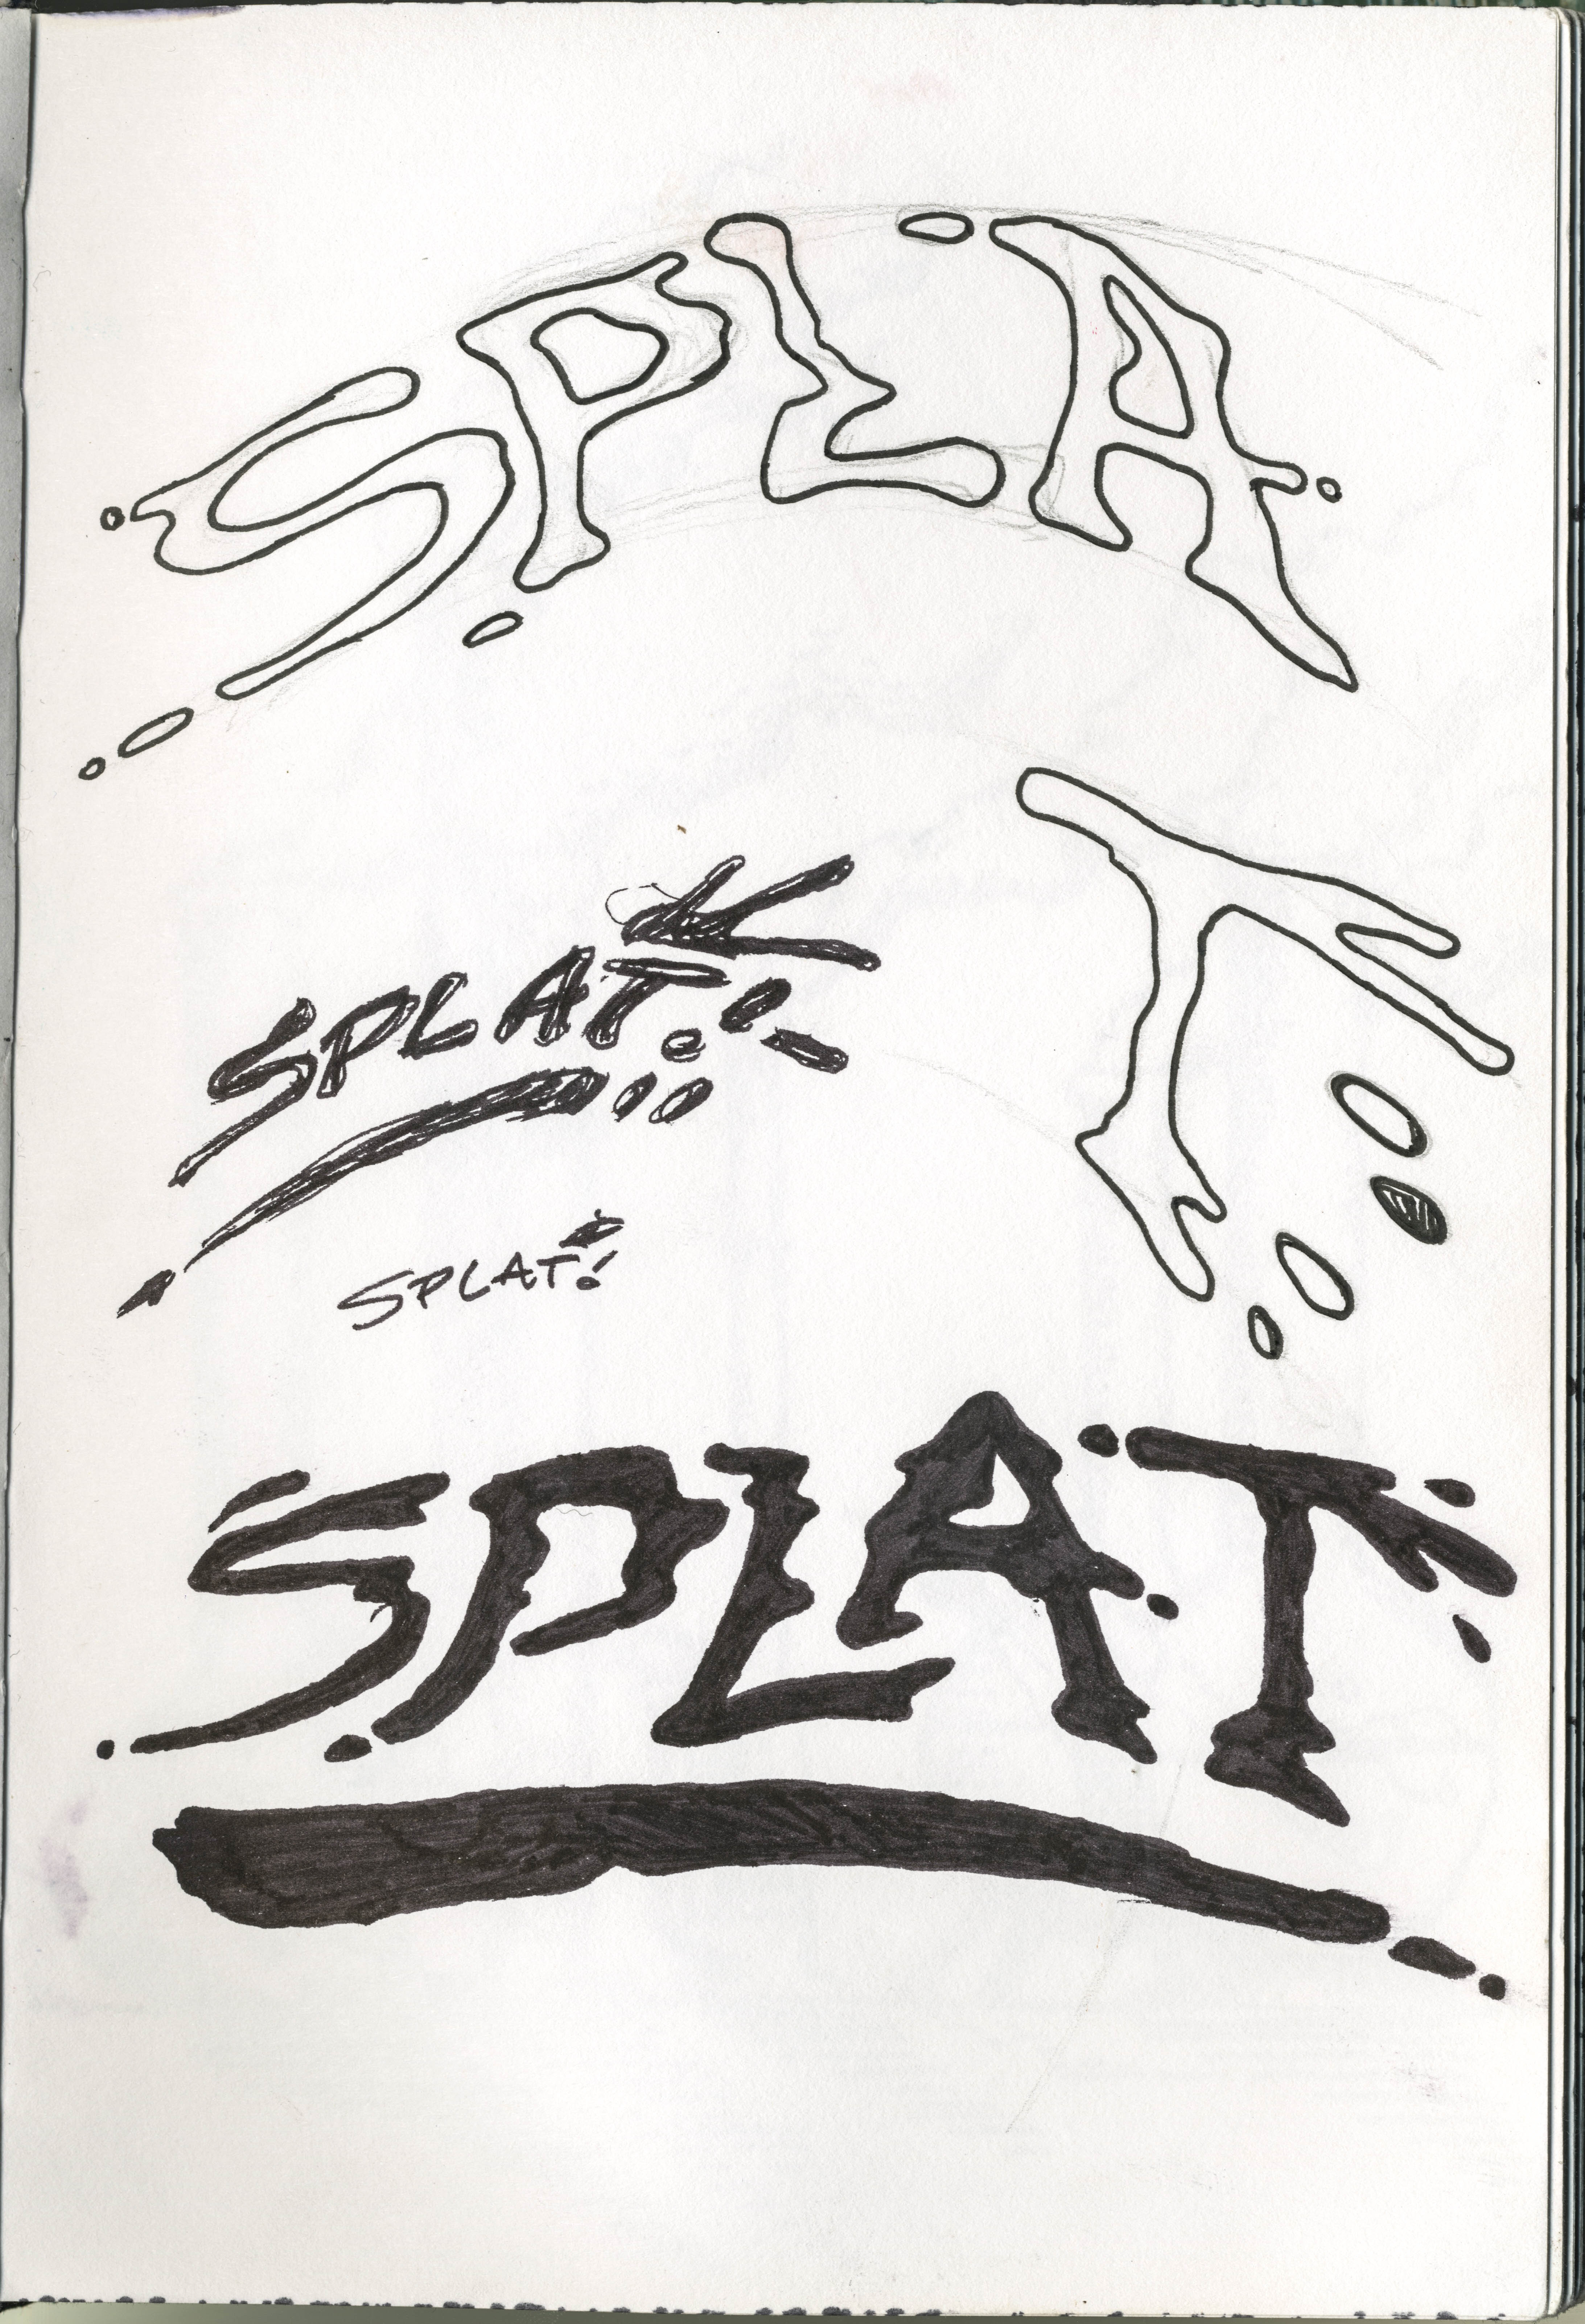 SPLA
T
SPLAT!
SPLAT!
SPLAT